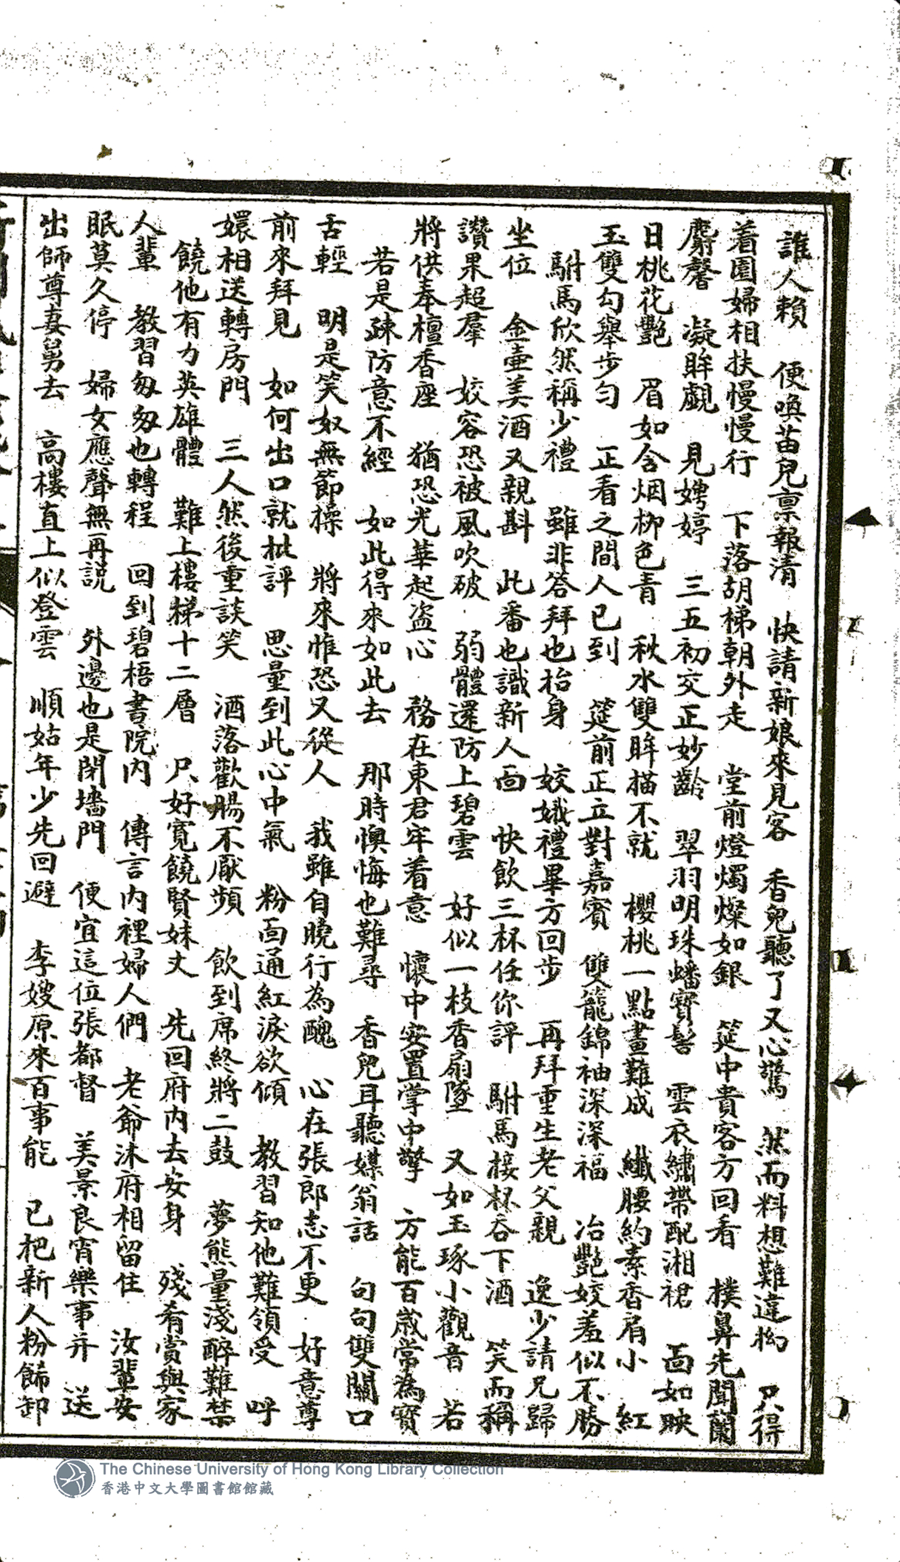 誰人賴　便喚苗兒禀報清　快請新娘來見客　香兒聽了又心驚　然而料想難違拘　只得
着園婦相扶慢慢行　下落胡梯朝外走　堂前燈燭燦如銀　筵中貴客方回看　撲鼻先聞蘭
麝馨　凝眸覷　見娉婷　三五初交正妙齡　翠羽明珠蟠寶髻　雲衣繡帶配湘裙　面如映
日桃花艷　眉如含烟柳色青　秋水雙眸描不就　櫻桃一點畫難成　纖腰約素香肩小　紅
玉雙勾舉步勻　正看之間人已到　筵前正立對嘉賓　雙籠錦袖深深福　冶艷姣羞似不勝
駙馬欣然稱少禮　雖非答拜也抬身　姣娥禮畢方回步　再拜重生老父親　逸少請兄歸
坐位　金壺美酒又親斟　此番也識新人面　快飲三杯任你評　駙馬接杯吞下酒　笑而稱
讚果超羣　姣容恐被風吹破　弱體還防上碧雲　好似一枝香扇墜　又如玉琢小觀音　若
將供奉檀香座　猶恐光華起盗心　務在東君牢着意　懷中安置掌中擎　方能百歲常為寶
若是疎防意不經　如此得來如此去　那時懊悔也難尋　香兒耳聽媒翁話　句句雙關口
舌輕　明是笑奴無節操　將來惟恐又從人　我雖自晚行為醜　心在張郎志不更　好意尊
前來拜見　如何出口就批評　思量到此心中氣　粉面通紅淚欲傾　教習知他難領受　呼
嬛相送轉房門　三人然後重談笑　酒落歡腸不厭頻　飲到席終將二鼓　夢熊量淺醉難禁
饒他有力英雄體　難上樓梯十二層　只好寬饒賢妹丈　先回府内去安身　殘肴賞與家
人輩　教習匆匆也轉程　回到碧梧書院内　傳言内裡婦人們　老爺沐府相留住　汝輩安
眠莫久停　婦女應聲無再說　外邊也是閉墻門　便宜這位張都督　美景良宵樂事并　送
出師尊妻舅去　高樓直上似登雲　順姑年少先回避　李嫂原來百事能　已把新人粉飾卸
The Chinese University of Hong Kong Library Collection
香港中文大學圖書館館藏